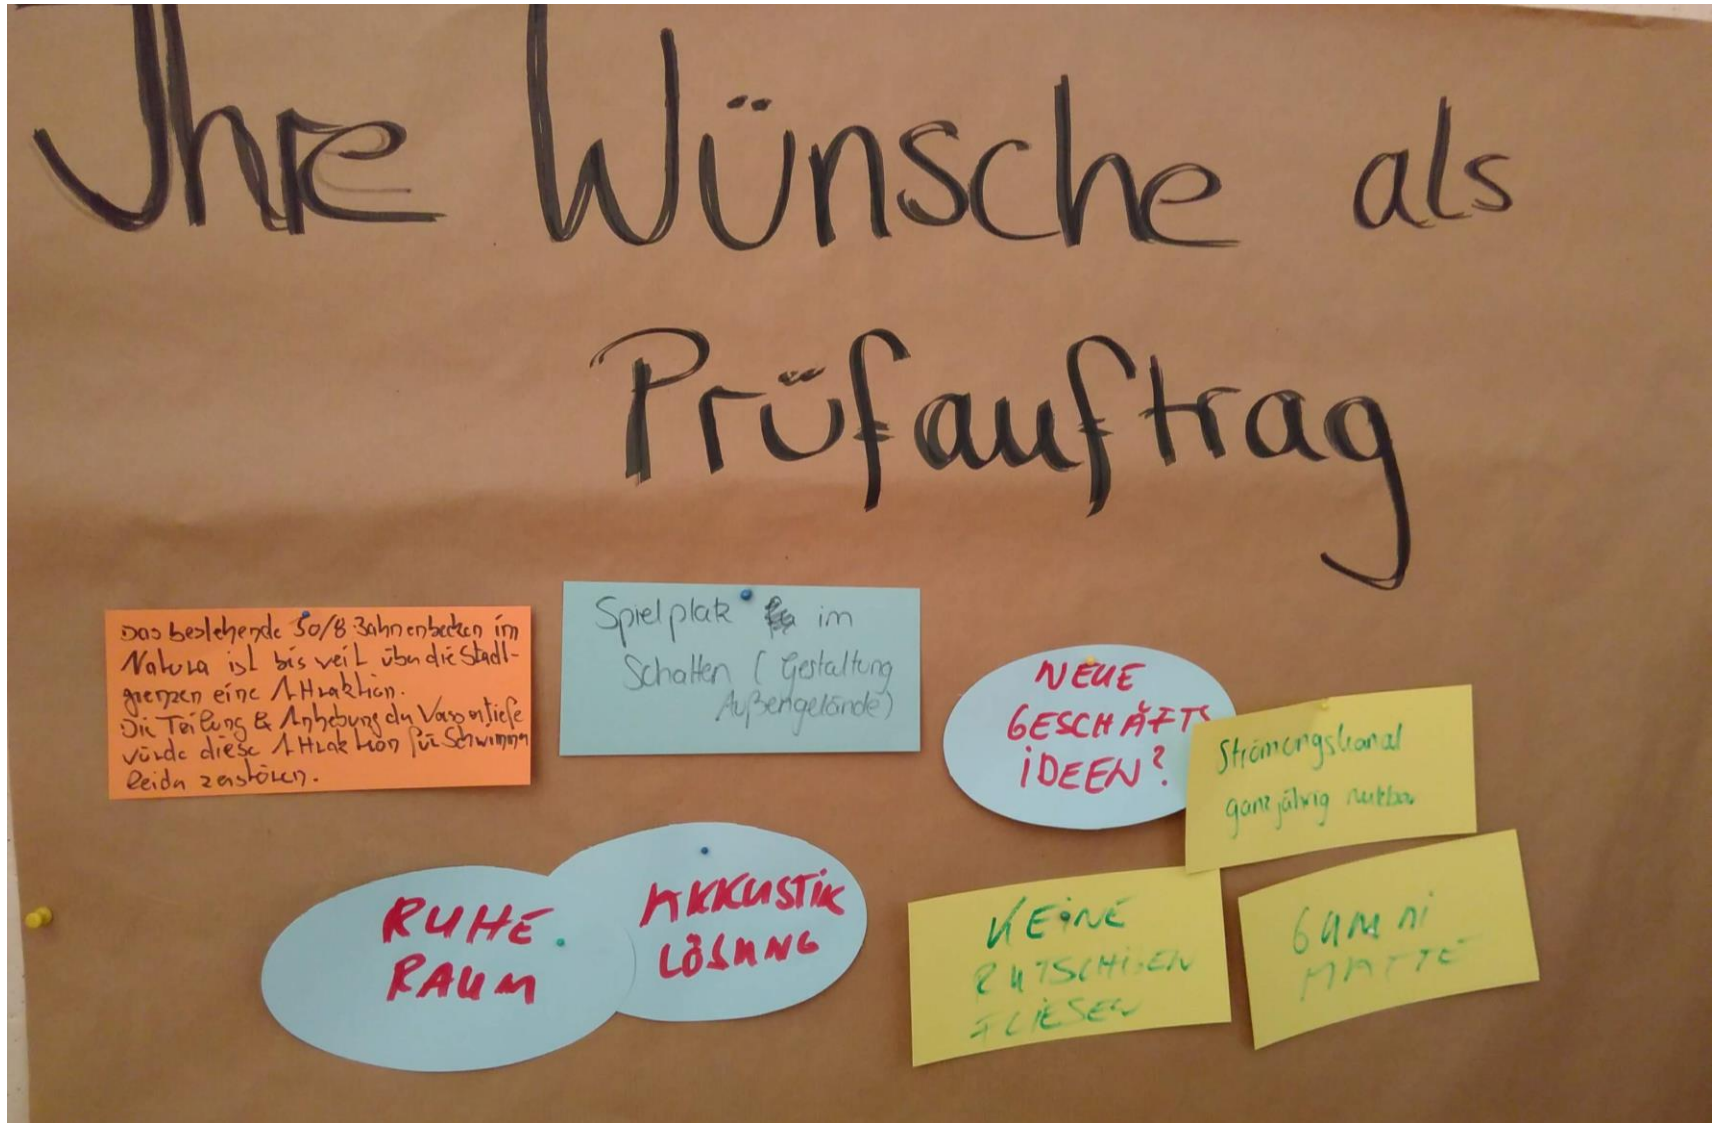 Ihre Wünsche als
Prüfauftrag
Das bestehende 50/8 Bahnenbecken im
Natura ist bis weit über die Stadt-
grenzen eine Attraktion.
Die Teilung & Anhebung der Wassertiefe
würde diese Attraktion für Schwimmer
leider zerstören.
Spielplatz im
Schatten (Gestaltung
Außengelände)
NEUE
GESCHÄFTS
IDEEN?
Strömungskanal
ganzjährig nutzbar
RUHE
RAUM
AKKUSTIK
LÖSUNG
KEINE
RUTSCHIGEN
FLIESEN
GUMMI
MATTE